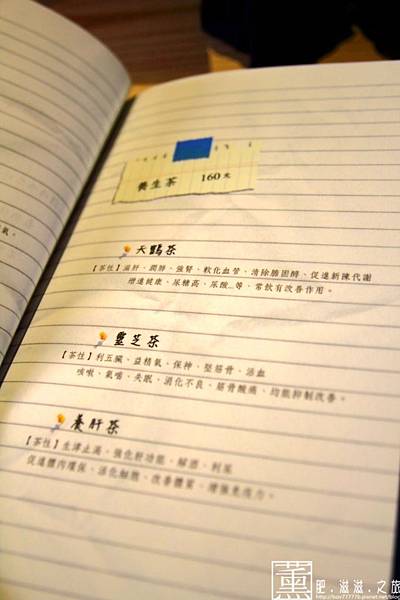 氣。
養生茶 160元
天鶴茶
【茶性】滋肝、潤肺、強腎、軟化血管、清除膽固醇、促進新陳代謝
增進健康、尿糖高、尿酸...等、常飲有改善作用。
靈芝茶
【茶性】利五臟、益精氣、保神、堅筋骨、活血
咳嗽、氣喘、失眠、消化不良、筋骨酸痛、均能抑制改善。
養肝茶
【茶性】生津止渴、強化肝功能、解酒、利尿
促進體內環保、活化細胞、改善體質、增強免疫力。
薰 肥.滋滋.之旅